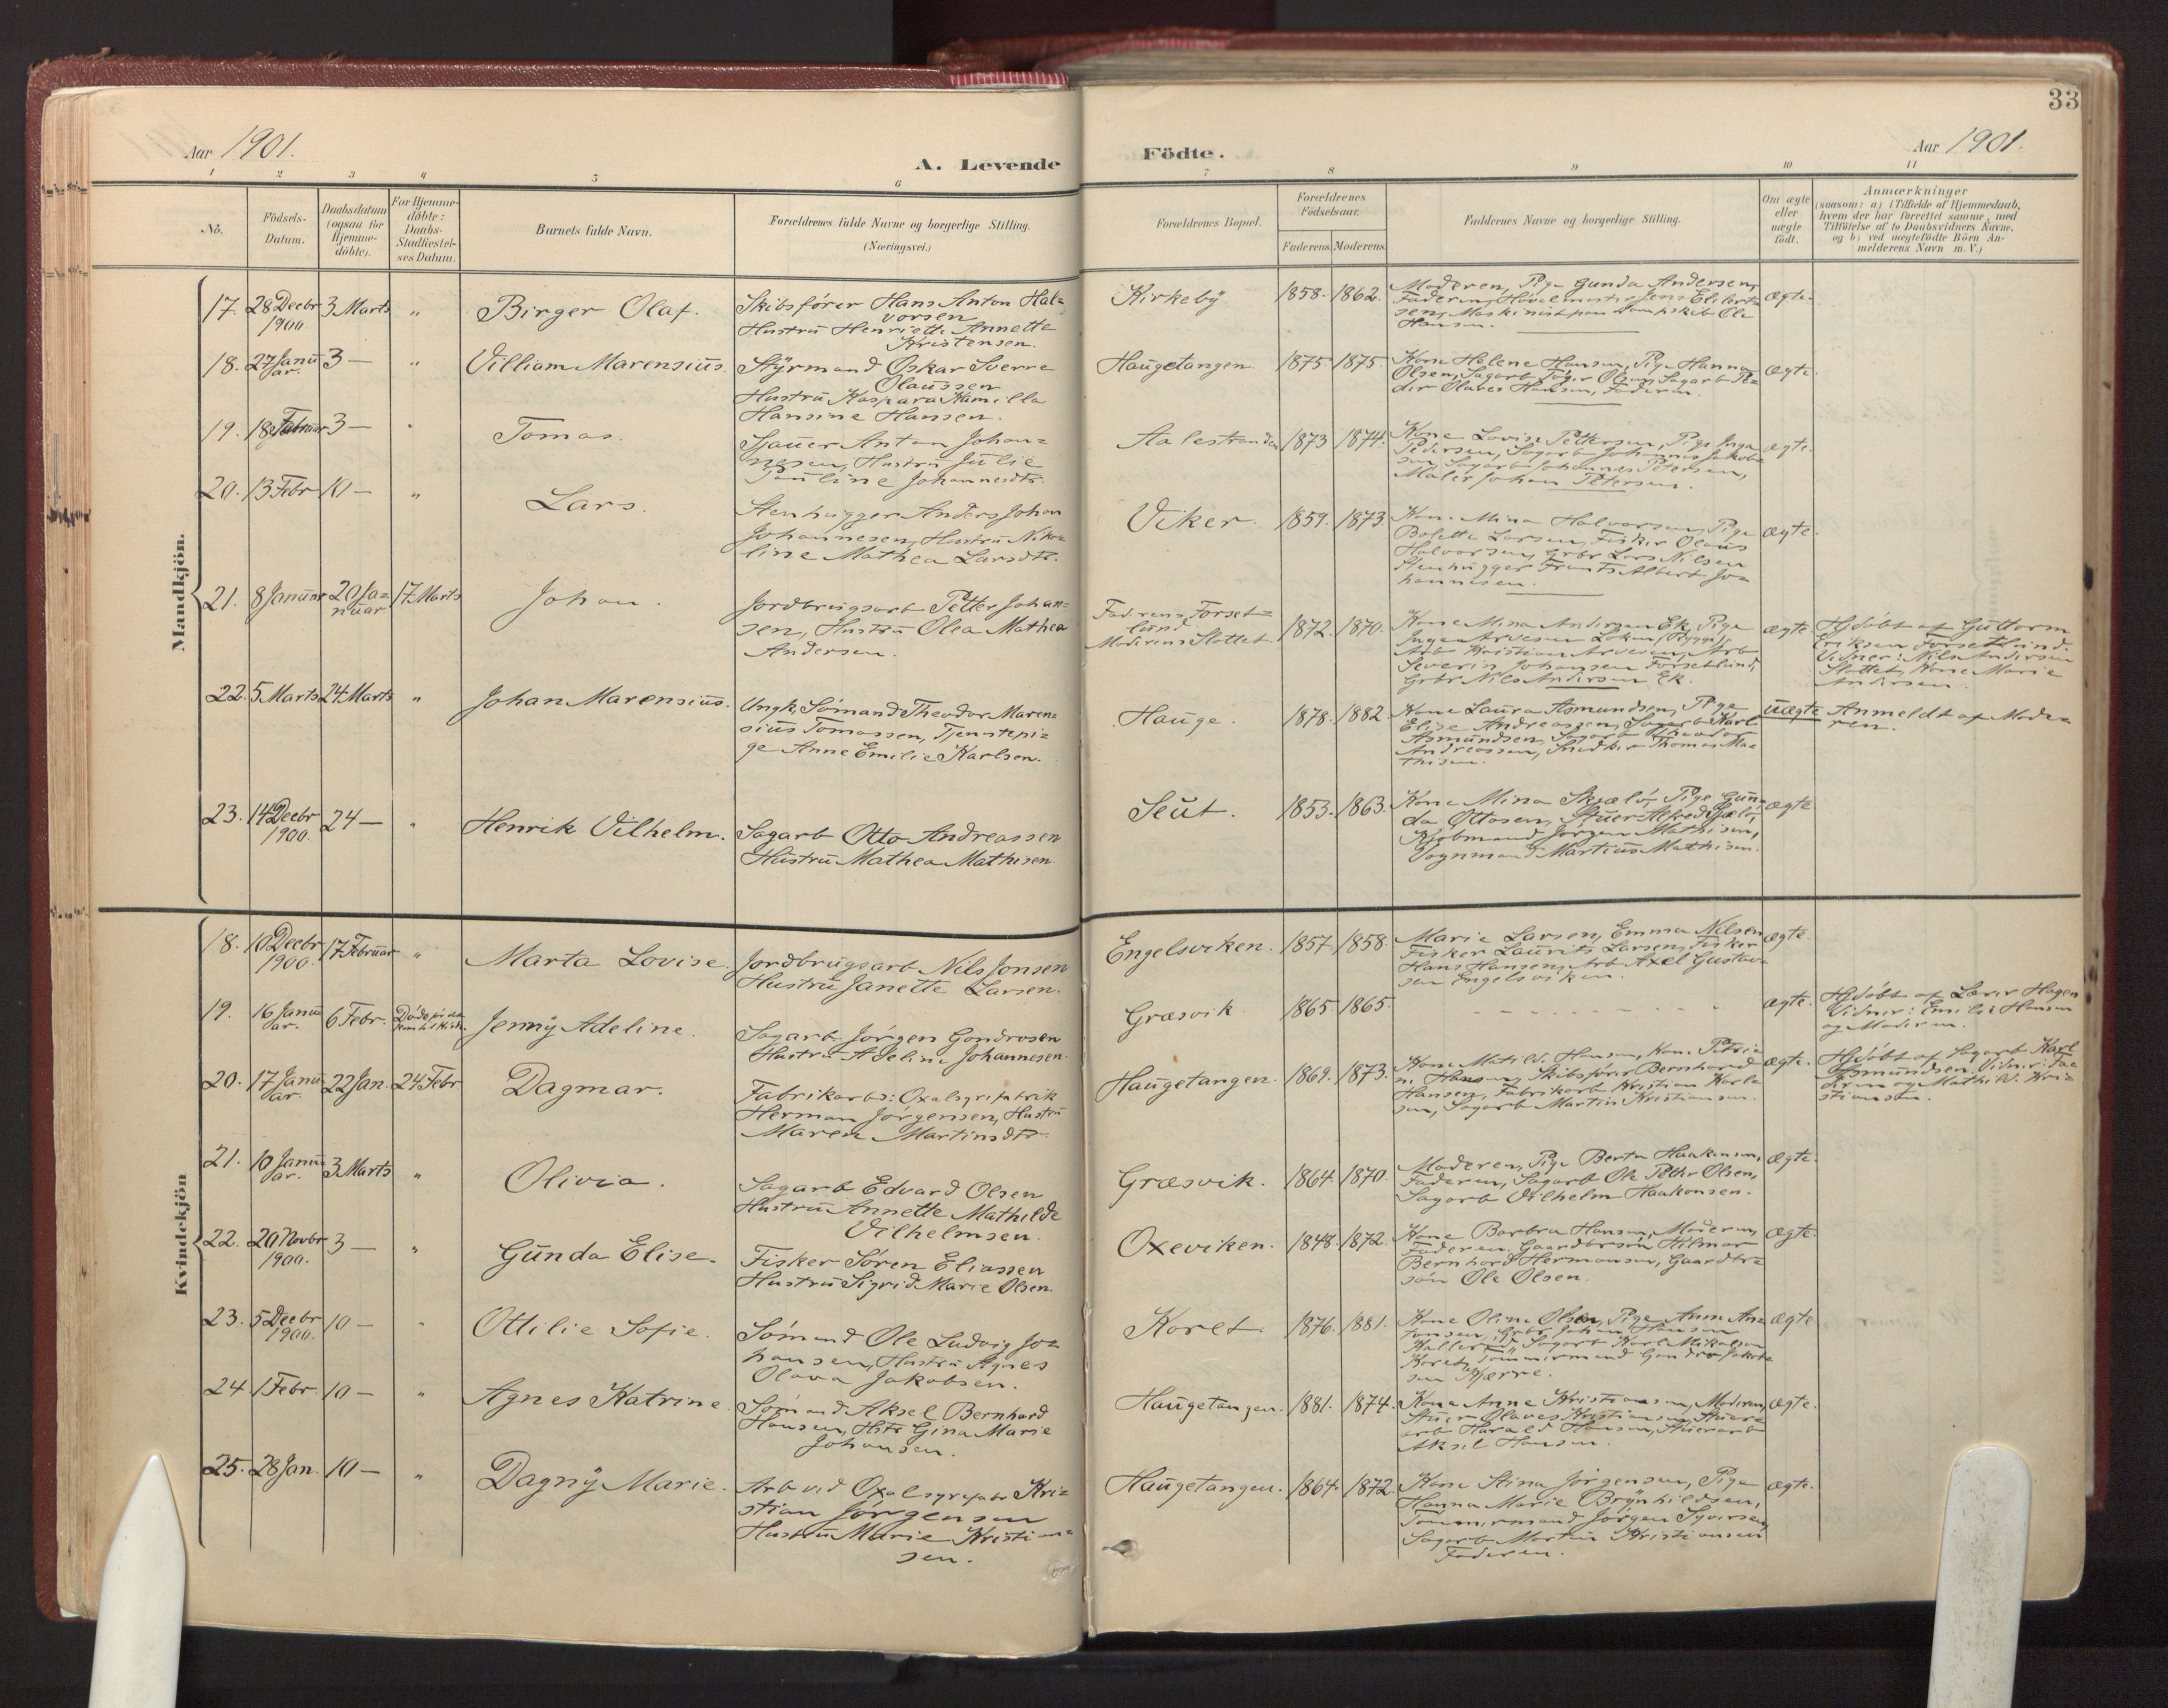 33
Aar 1901.
A. Levende
Födte.
Aar 1901.
1 2 3 4 5 6 7 8 9 10 11
No.
Födsels-
Datum.
Daabsdatum
(ogsaa for
Hjemme-
döbte).
For Hjemme-
döbte:
Daabs-
Stadfæstel-
ses Datum.
Barnets fulde Navn.
Forældrenes fulde Navne og borgerlige Stilling.
(Næringsvei.)
Forældrenes Bopæl.
Forældrenes
Födselsaar.
Faderens. Moderens.
Faddernes Navne og borgerlige Stilling.
Om ægte
eller
uægte
födt.
Anmærkninger
(saasom: a) i Tilfælde af Hjemmedaab,
hvem der har forrettet samme, med
Tilföielse af to Daabsvidners Navne,
og b) ved uægtefödte Börn An-
melderens Navn m. V.)
Mandkjön.
17. 28 Decbr
1900. 3 Marts „
Birger Olaf.
Skibsfører Hans Anton Hal=
vorsen
Hustru Henriette Annette
Kristensen.
Kirkeby
1858. 1862.
Moderen, Pige Gunda Andersen,
Faderen, Jens Eilert=
sen, Maskinist paa Dampskib Ole
Hansen.
ægte.
18. 27 Janu
ar. 3 — „
Villiam Marensius.
Styrmand Oskar Sverre
Olaussen
Hustru Kaspara Kamilla
Hansine Hansen.
Haugetangen
1875. 1875.
Kone Helene Hansen, Pige Hanna
Olsen, Sagarb Olsen, Sagarb Pe=
der Olaves Hansen, Faderen.
ægte.
19. 18 Februar 3 — „
Tomas.
Sjauer Anton Johan=
nesen, Hustru Julie
Pauline Johannesdtr.
Aalestranden
1873 1874.
Kone Lovise Pettersen, Pige Inga
Pedersen, Sagarb Johannes Jakob=
sen, Sagarb Johannes Petersen,
Maler Johan Petersen.
ægte.
20. 13 Febr 10 — „
Lars.
Stenhugger Anders Johan
Johannesen, Hustru Niko=
line Mathea Larsdtr.
Viker.
1859. 1873.
Kone Mina Halvorsen, Pige
Bolette Larsen, Fisker Olaus
Halvorsen, Grbr Lars Nilsen
Stenhugger Frants Albert Jo=
hannesen.
ægte.
21. 8 Januar 20 Ja=
nuar 17 Marts
Johan.
Jordbrugsarb Petter Johan=
sen, Hustru Olea Mathea
Andersen.
Faderens Forset=
lund
Moderens Slottet
1872. 1870.
Kone Mina Andersen Ek, Pige
Inga Arvesen Løken (Rygge)
Arb Kristian Arvesen, Arb
Severin Johansen Forsetlund,
Grbr Nils Andersen Ek.
ægte.
Hjdøbt af Guttorm
Eriksen Forsetlund.
Vidner: Nils Andersen
Slottet, Kone Marie
Andersen.
22. 5 Marts 24 Marts „
Johan Marensius.
Ungk. Sømand Theodor Maren=
sius Tomassen, Tjenstepi=
ge Anne Emilie Karlsen.
Hauge.
1878. 1882.
Kone Laura Asmundsen, Pige
Elise Andreassen, Sagarb Karl
Asmundsen, Sagarb Theodor
Andreassen, Snedker Thomas Ma=
thisen.
uægte
Anmeldt af Mode=
ren.
23. 14 Decbr
1900. 24 — „
Henrik Vilhelm.
Sagarb Otto Andreassen
Hustru Mathea Mathisen
Seut.
1853. 1863.
Kone Mina Skjælø, Pige Gun=
da Ottosen, Stuer Alfred Skjælø,
Kjøbmand Jørgen Mathisen,
Vognmand Martius Mathisen.
ægte
Kvindekjön
18. 10 Decbr
1900. 17 Februar „
Marta Lovise.
Jordbrugsarb Nils Jonsen
Hustru Janette Larsen.
Engelsviken.
1857 1858.
Marie Larsen, Emma Nilsen,
Fisker Laurits Larsen, Fisker
Hans Hansen, Arb Axel Gustav=
sen Engelsviken.
ægte.
19. 16 Janu
ar. 6 Febr. Døde før den
kom til Kirke.
Jenny Adeline.
Sagarb Jørgen Gondrosen
Hustru Adeline Johannesen.
Græsvik
1865. 1865.
ægte.
Hjdøbt af Lærer Hagen
Vidner: Emilie Hansen
og Moderen.
20. 17 Janu
ar. 22 Jan. 24 Febr
Dagmar.
Fabrikarb: Oxalsyrefabrik
Herman Jørgensen, Hustru
Maren Martinsdtr.
Haugetangen.
1869. 1873.
Kone Matilde Hansen, Kone Petri=
ne Hansen, Skibsfører Bernhard
Hansen, Fabrikarb Kristian Karl=
sen, Sagarb Martin Kristiansen.
ægte.
Hjdøbt af Sagarb Karl
Asmundsen. Vidner: Fa=
deren og Mathilde Kri=
stiansen.
21. 10 Janu
ar. 3 Marts „
Olivia.
Sagarb Edvard Olsen
Hustru Annette Mathilde
Vilhelmsen.
Græsvik.
1864. 1870.
Moderen, Pige Berta Haakensen,
Faderen, Sagarb Ole Petter Olsen,
Sagarb Vilhelm Haakonsen.
ægte.
22. 20 Novbr
1900. 3 — „
Gunda Elise.
Fisker Søren Eliassen
Hustru Sigrid Marie Olsen.
Oxeviken.
1848. 1872.
Kone Barbra Hansen, Moderen,
Faderen, Gaardbrsøn Hilmar
Bernhard Hermansen, Gaardbr=
søn Ole Olsen.
ægte.
23. 5 Decbr
1900. 10 — „
Ottilie Sofie.
Sømand Ole Ludvig Jo=
hansen, Hustru Agnes
Olava Jakobsen.
Koret
1876. 1881.
Kone Oline Olsen, Pige Anne An=
tonsen, Grbr Johan Hansen
Kallerød, Sagarb Karl Mikalsen
Koret, Tømmermand Gondro Jakob=
sen Kjærre.
ægte
24 1 Febr. 10 — „
Agnes Katrine.
Sømand Aksel Bernhard
Hansen, Hstr Gina Marie
Johansen.
Haugetangen.
1881. 1874.
Kone Anne Kristiansen, Moderen,
Stuer Olaves Kristiansen, Stuer=
arb Harald Hansen, Stuerarb
Aksel Hansen.
ægte.
25. 28 Jan. 10 — „
Dagny Marie.
Arb ved Oxalsyrefabr Kri=
stian Jørgensen
Hustru Marie Kristian=
sen.
Haugetangen.
1864. 1872.
Kone Stina Jørgensen, Pige
Hanna Marie Brynhildsen,
Tømmermand Jørgen Syversen,
Sagarb Martin Kristiansen
Faderen.
ægte.